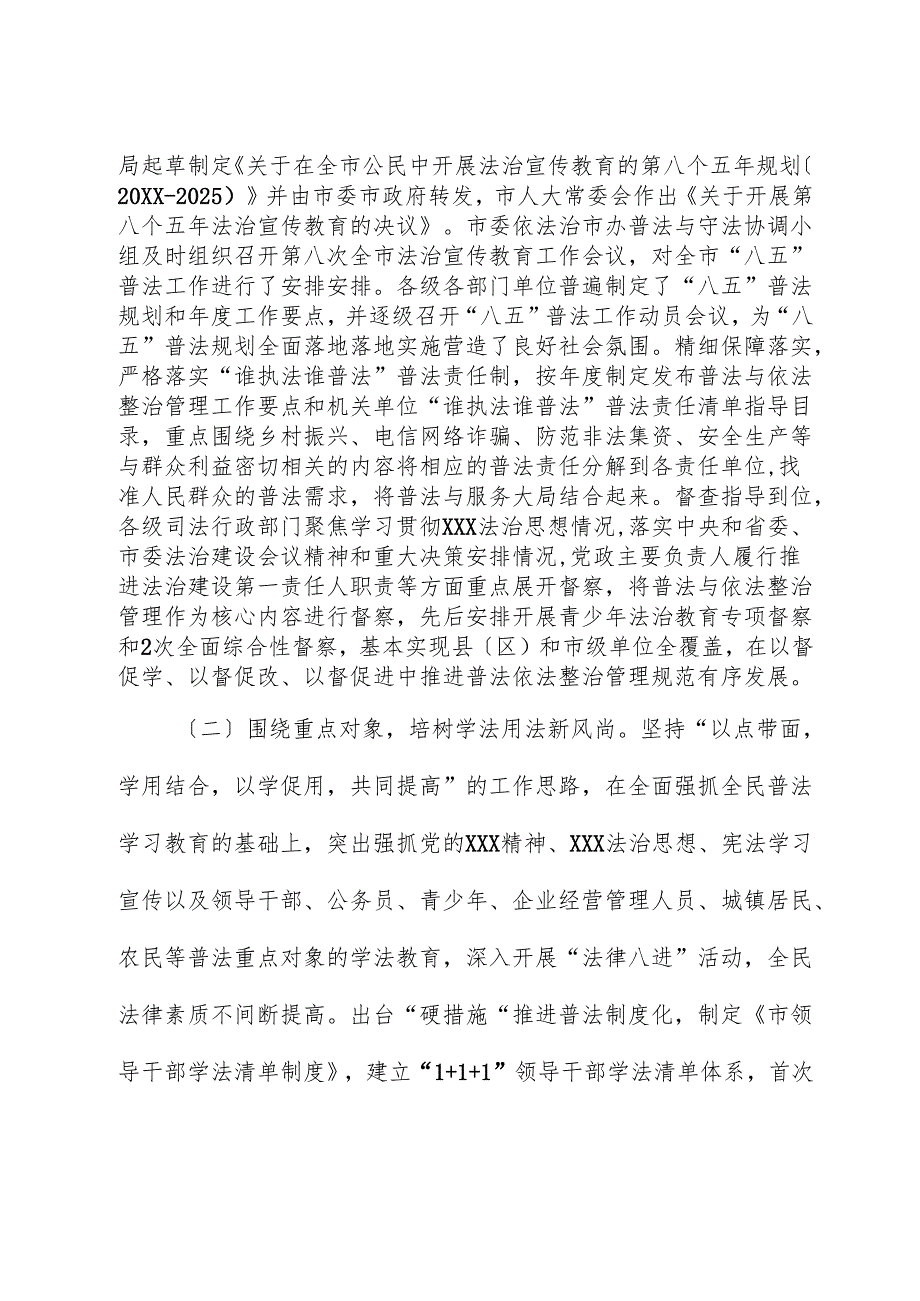 局起草制定《关于在全市公民中开展法治宣传教育的第八个五年规划〔
20XX-2025）》并由市委市政府转发，市人大常委会作出《关于开展第
八个五年法治宣传教育的决议》。市委依法治市办普法与守法协调小
组及时组织召开第八次全市法治宣传教育工作会议，对全市“八五”
普法工作进行了安排安排。各级各部门单位普遍制定了“八五”普法
规划和年度工作要点，并逐级召开“八五”普法工作动员会议，为“八
五”普法规划全面落地落地实施营造了良好社会氛围。精细保障落实，
严格落实“谁执法谁普法”普法责任制，按年度制定发布普法与依法
整治管理工作要点和机关单位“谁执法谁普法”普法责任清单指导目
录，重点围绕乡村振兴、电信网络诈骗、防范非法集资、安全生产等
与群众利益密切相关的内容将相应的普法责任分解到各责任单位,找
准人民群众的普法需求，将普法与服务大局结合起来。督查指导到位，
各级司法行政部门聚焦学习贯彻XXX法治思想情况,落实中央和省委、
市委法治建设会议精神和重大决策安排情况,党政主要负责人履行推
进法治建设第一责任人职责等方面重点展开督察，将普法与依法整治
管理作为核心内容进行督察，先后安排开展青少年法治教育专项督察
和2次全面综合性督察，基本实现县〔区）和市级单位全覆盖，在以督
促学、以督促改、以督促进中推进普法依法整治管理规范有序发展。
〔二〕围绕重点对象，培树学法用法新风尚。坚持“以点带面，
学用结合，以学促用，共同提高”的工作思路，在全面强抓全民普法
学习教育的基础上，突出强抓党的XXX精神、XXX法治思想、宪法学习
宣传以及领导干部、公务员、青少年、企业经营管理人员、城镇居民、
农民等普法重点对象的学法教育，深入开展“法律八进”活动，全民
法律素质不间断提高。出台“硬措施“推进普法制度化，制定《市领
导干部学法清单制度》，建立“1+1+1”领导干部学法清单体系，首次